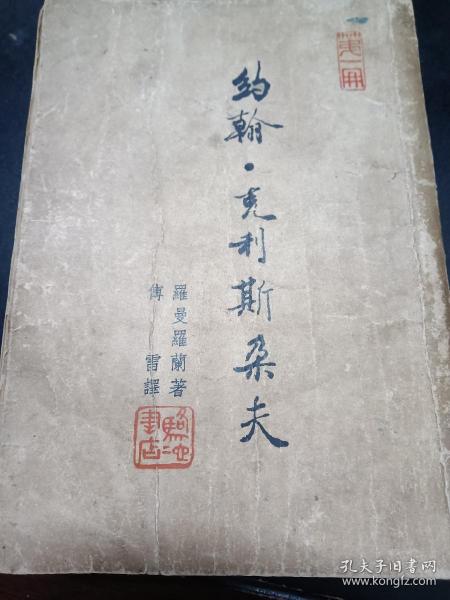 第一冊
約翰·克利斯朵夫
羅曼羅蘭著
傅雷譯
駱駝書店
孔夫子旧书网
www.kongfz.com